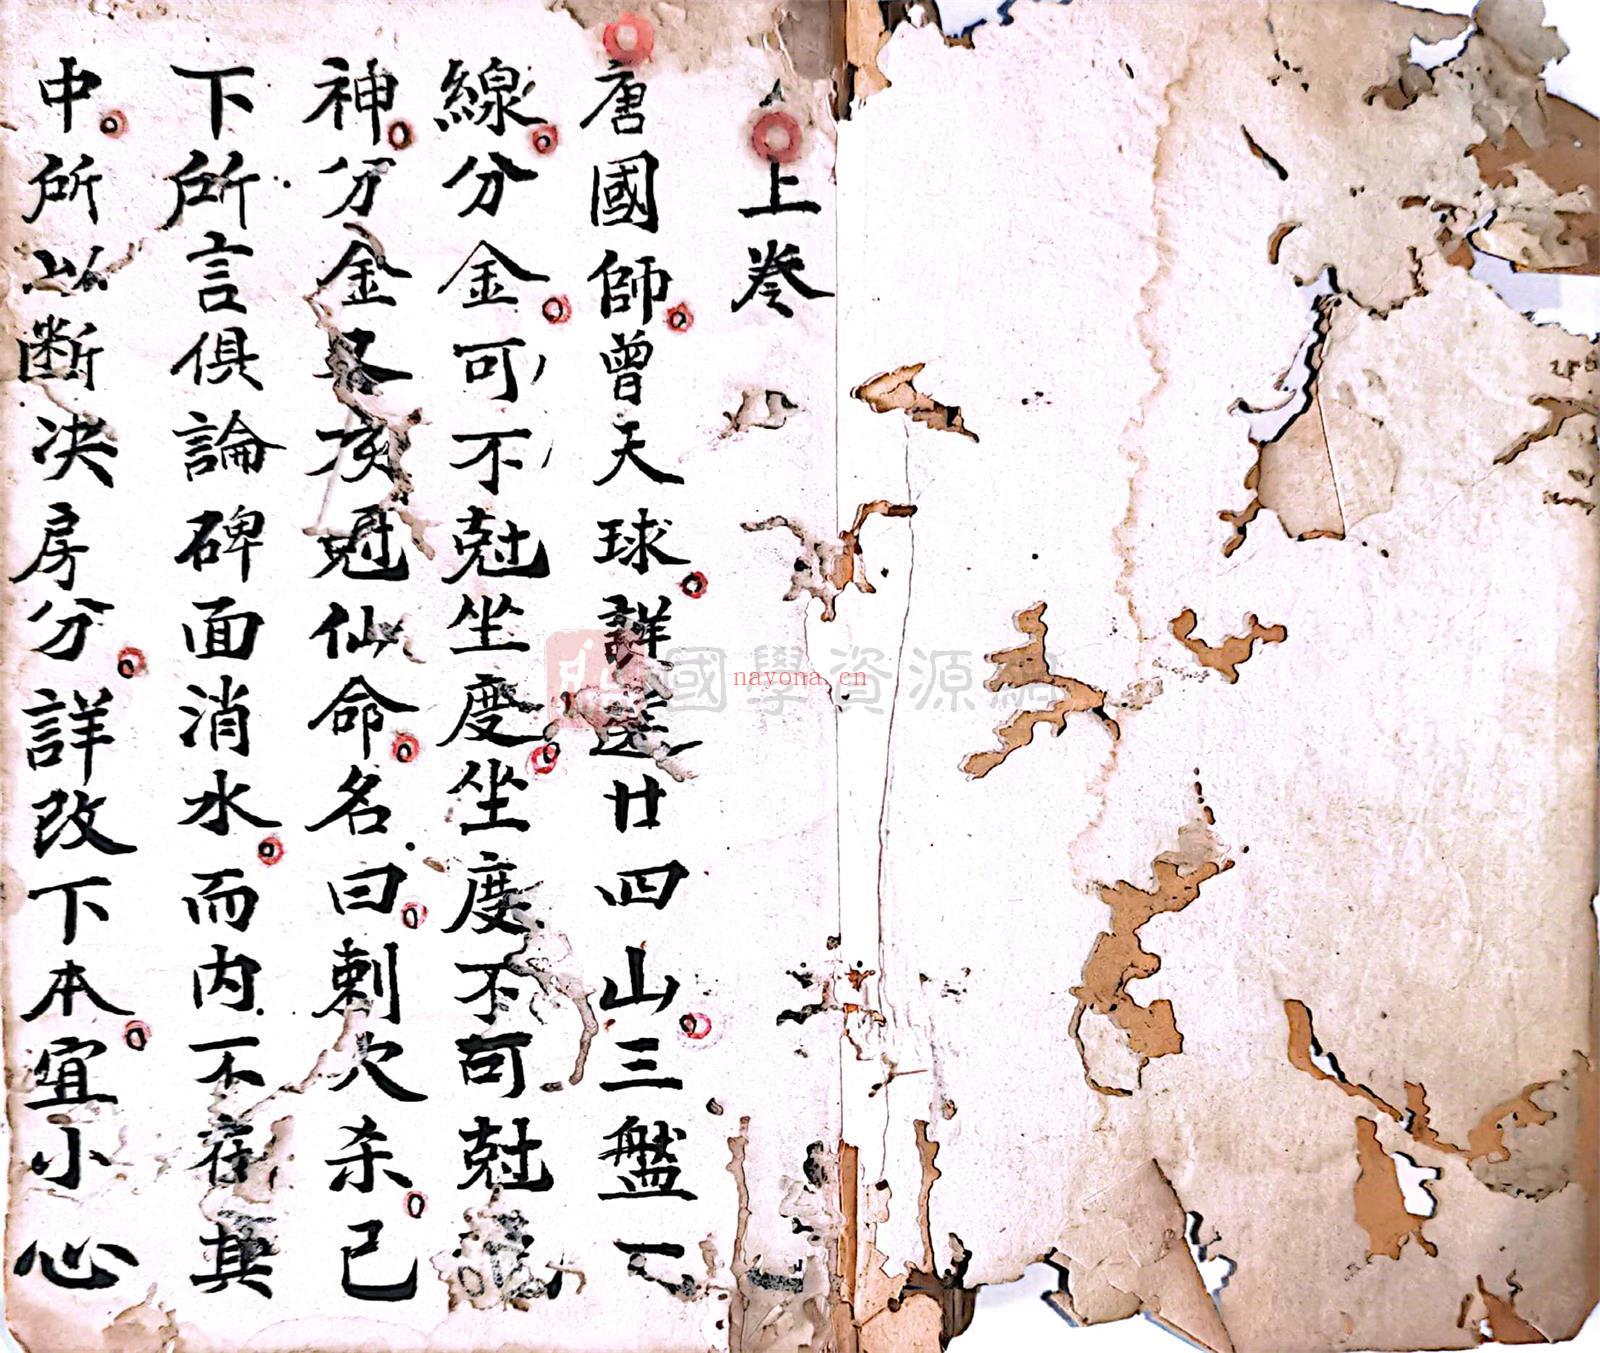 上巻
唐國師曾天球詳選廿四山三盤一
線分金可不尅坐度坐度不可尅龍
神分金又次冠仙命名曰剌欠杀已
下所言俱論碑面消水而内不在其
中所以断决房分詳改下本宜小心
國學資源網
nayona.cn